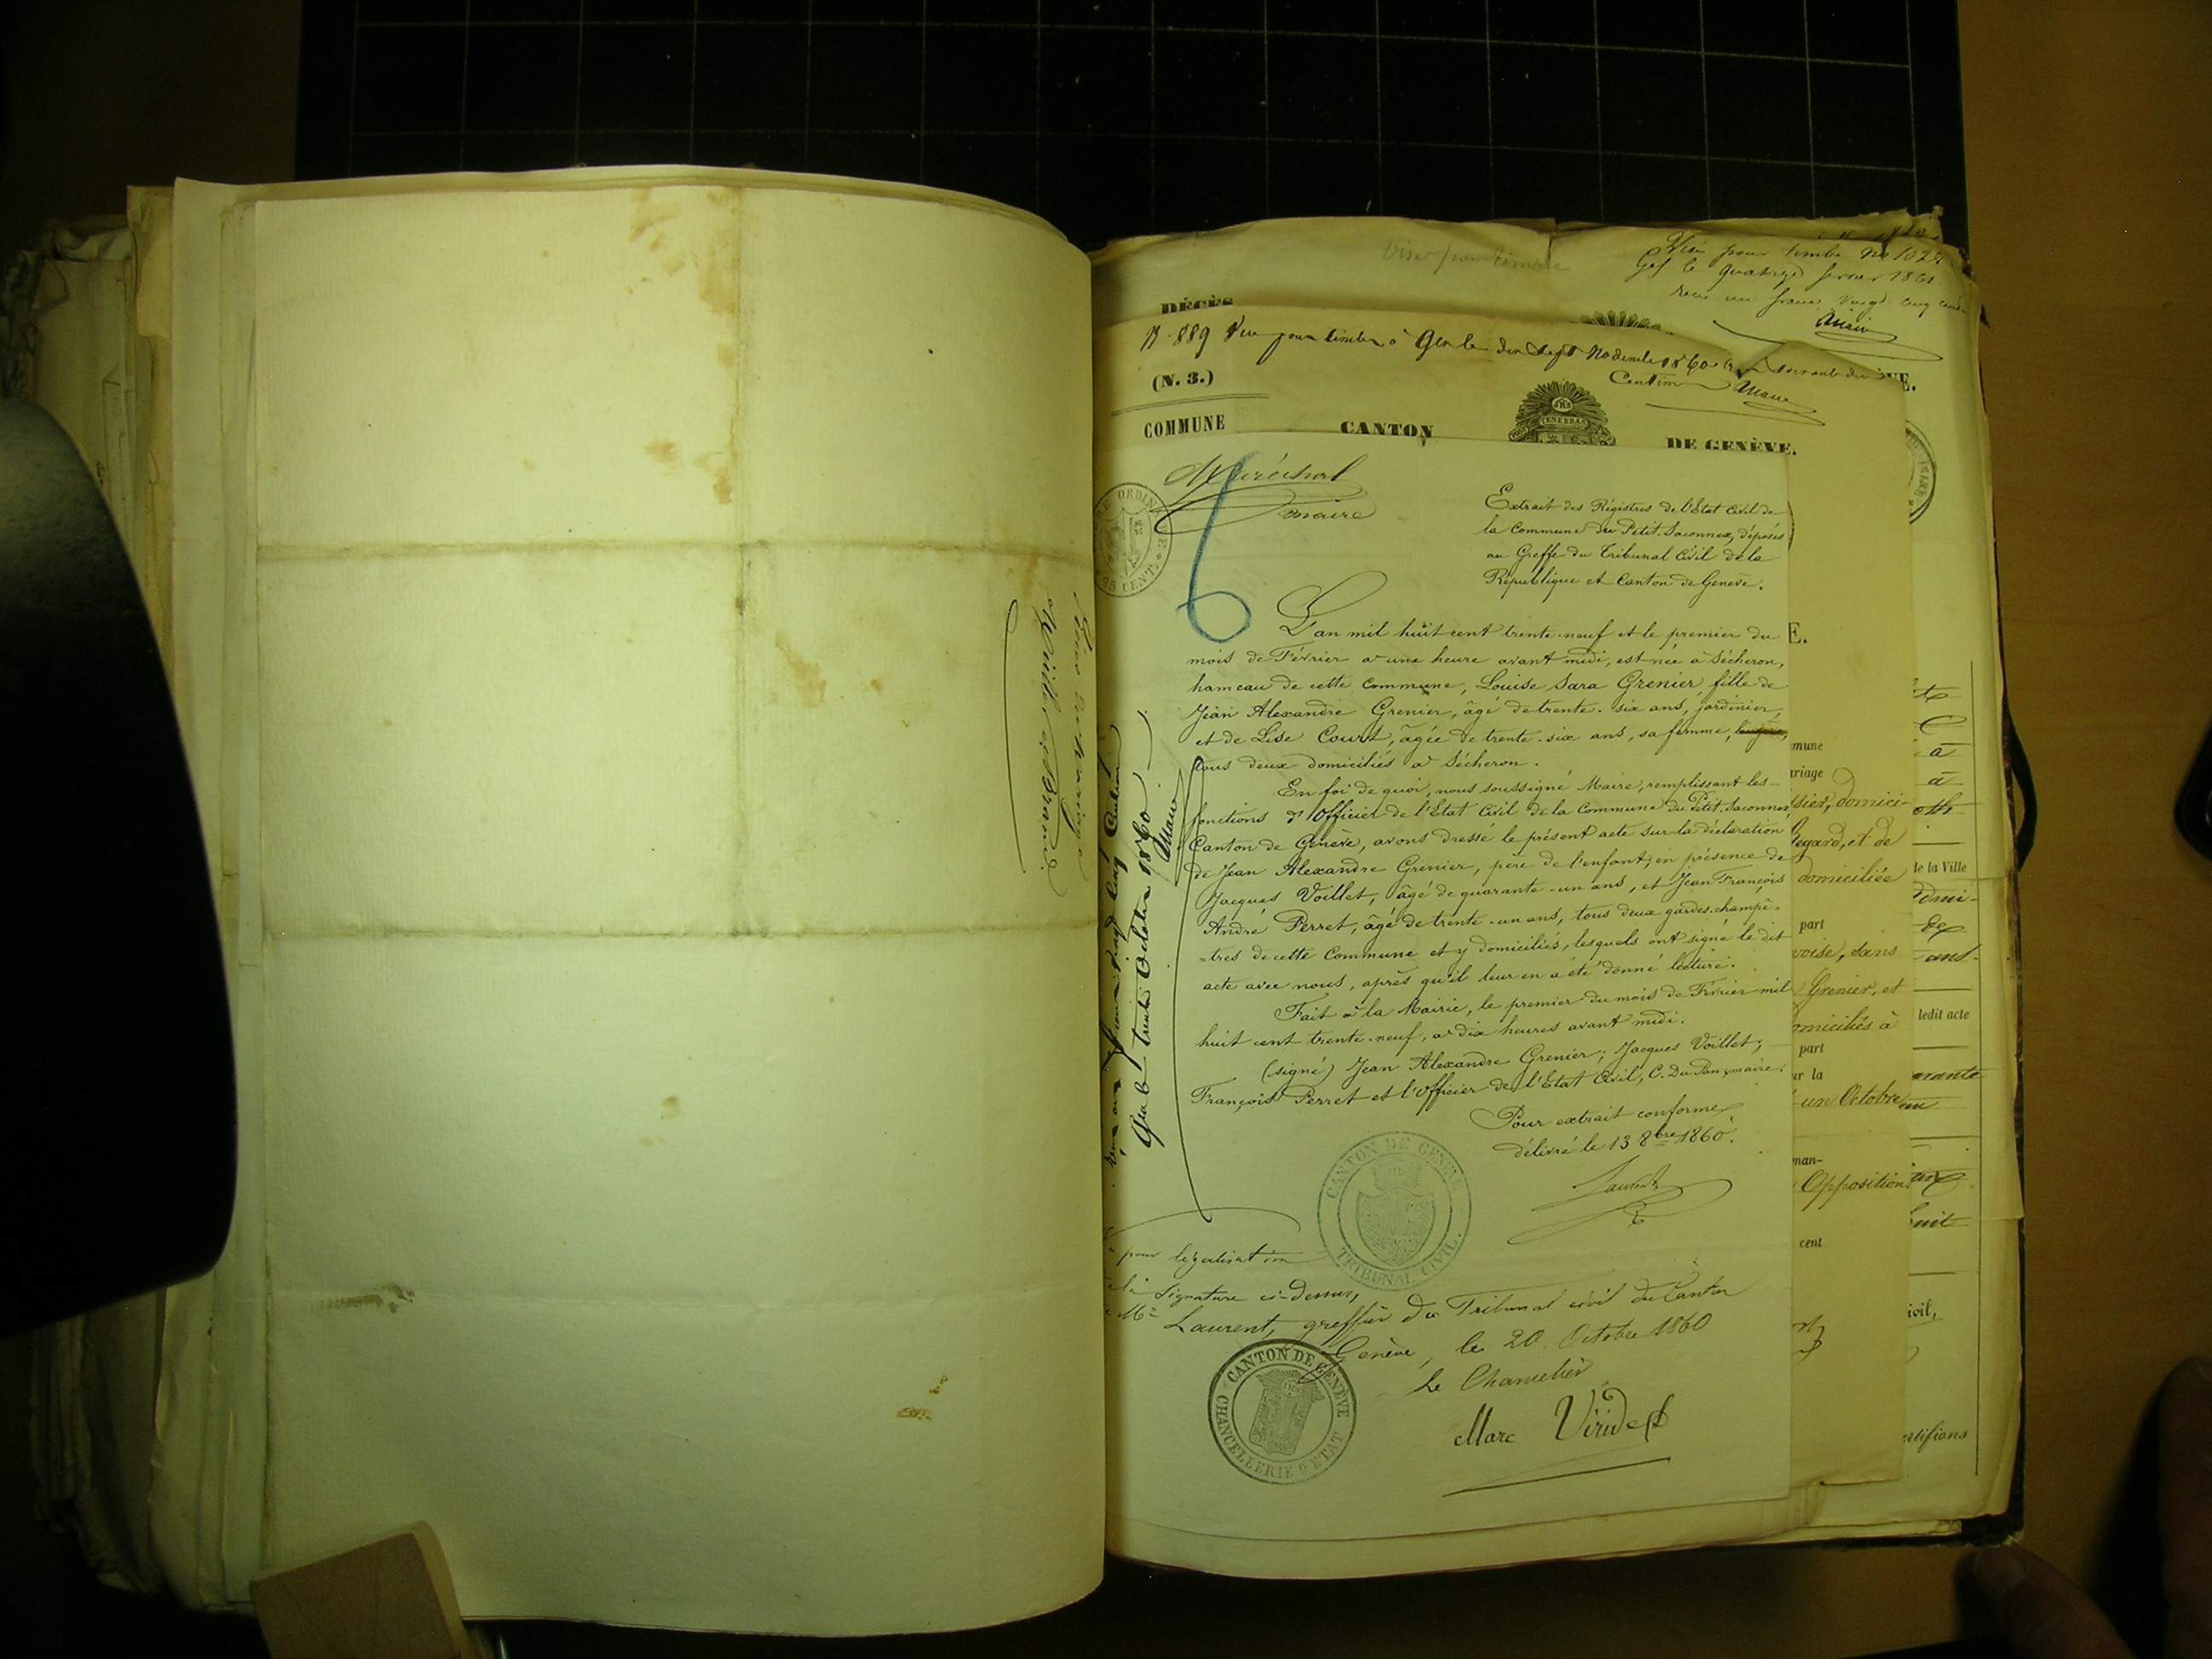 Viser pour timbre
Visé pour timbre No 102
Gex le quatorze février 1861
Reçu un franc vingt cinq cent
DÉCÈS
N. 889 Vu pour timbre à Gex le dix sept Novembre 1860
Centimes
(N. 3.)
COMMUNE
CANTON
DE GENÈVE.
VE.
TENEBRAS
Maréchal
maire
6
ORDIN
25 CENT.
Extrait des Régistres de l'Etat Civil de
la Commune du Petit-Saconnex, déposés
au Greffe du Tribunal Civil de la
République et Canton de Genève.
L'an mil huit cent trente-neuf et le premier du
mois de Février à une heure avant midi, est née à Sécheron,
hameau de cette Commune, Louise Sara Grenier, fille de
Jean Alexandre Grenier, âgé de trente-six ans, jardinier,
et de Lise Court, âgée de trente-six ans, sa femme,
tous deux domiciliés à Sécheron.
En foi de quoi, nous soussigné Maire, remplissant les
fonctions d'Officier de l'Etat Civil de la Commune du Petit-Saconnex,
Canton de Genève, avons dressé le présent acte sur la déclaration
de Jean Alexandre Grenier, père de l'enfant, en présence de
Jacques Voillet, âgé de quarante-un ans, et Jean François
André Perret, âgé de trente-un ans, tous deux gardes-champê-
-tres de cette Commune et y domiciliés, lesquels ont signé le dit
acte avec nous, après qu'il leur en a été donné lecture.
Fait à la Mairie, le premier du mois de Février mil
huit cent trente-neuf, à dix heures avant midi.
(signé) Jean Alexandre Grenier; Jacques Voillet;
François Perret et l'Officier de l'Etat Civil, C. Du Pan, maire.
Pour extrait conforme,
délivré le 13 8bre 1860.
Laurent
CANTON DE GENÈVE
TRIBUNAL CIVIL.
pour légalisation
Signature ci-dessus,
Mr Laurent, greffier du Tribunal civil du Canton
Genève, le 20 Octobre 1860
Le Chancelier
Marc Viridet
CANTON DE GENÈVE
CHANCELLERIE D'ETAT
un franc vingt cinq Centimes
Gex le trente Octobre 1860
E.
mune
riage
sier, domici-
legard, et de
domiciliée
part
voise, dans
Grenier, et
omiciliés à
part
ur la
un Octobre
man-
Opposition
cent
à
à
le la Ville
domi-
ledit acte
arante
huit
ivil,
ertifions